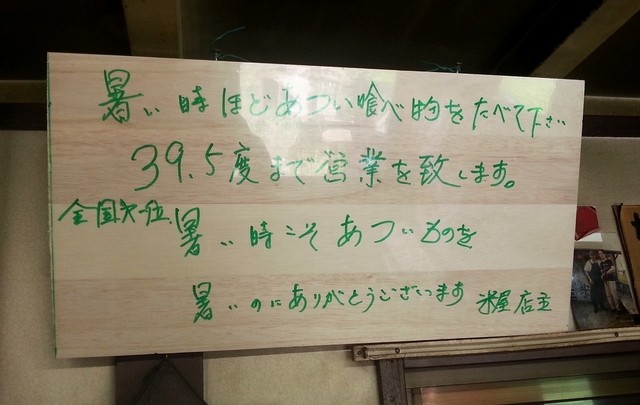 暑い時ほどあつい喰べ物をたべて下さい
39.5度まで営業を致します。
全国第一位 暑い時こそあついものを
暑いのにありがとうございます 米屋店主